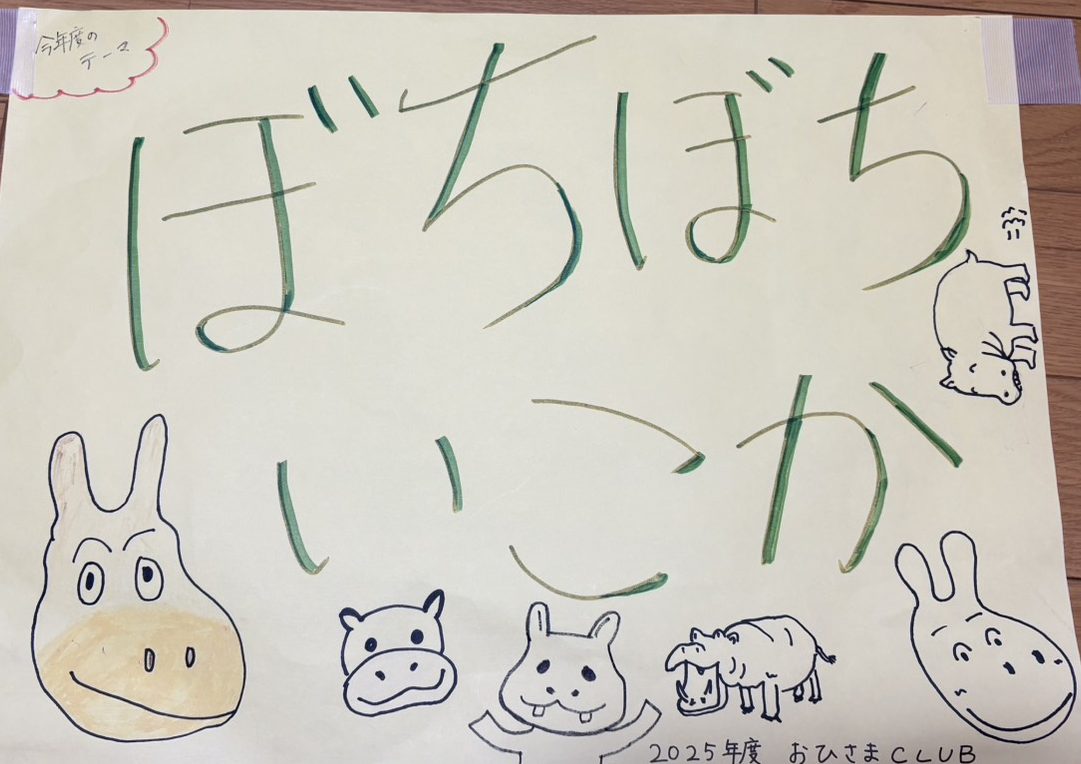 今年度の
テーマ
ぼちぼち
いこか
2025年度 おひさまCLUB